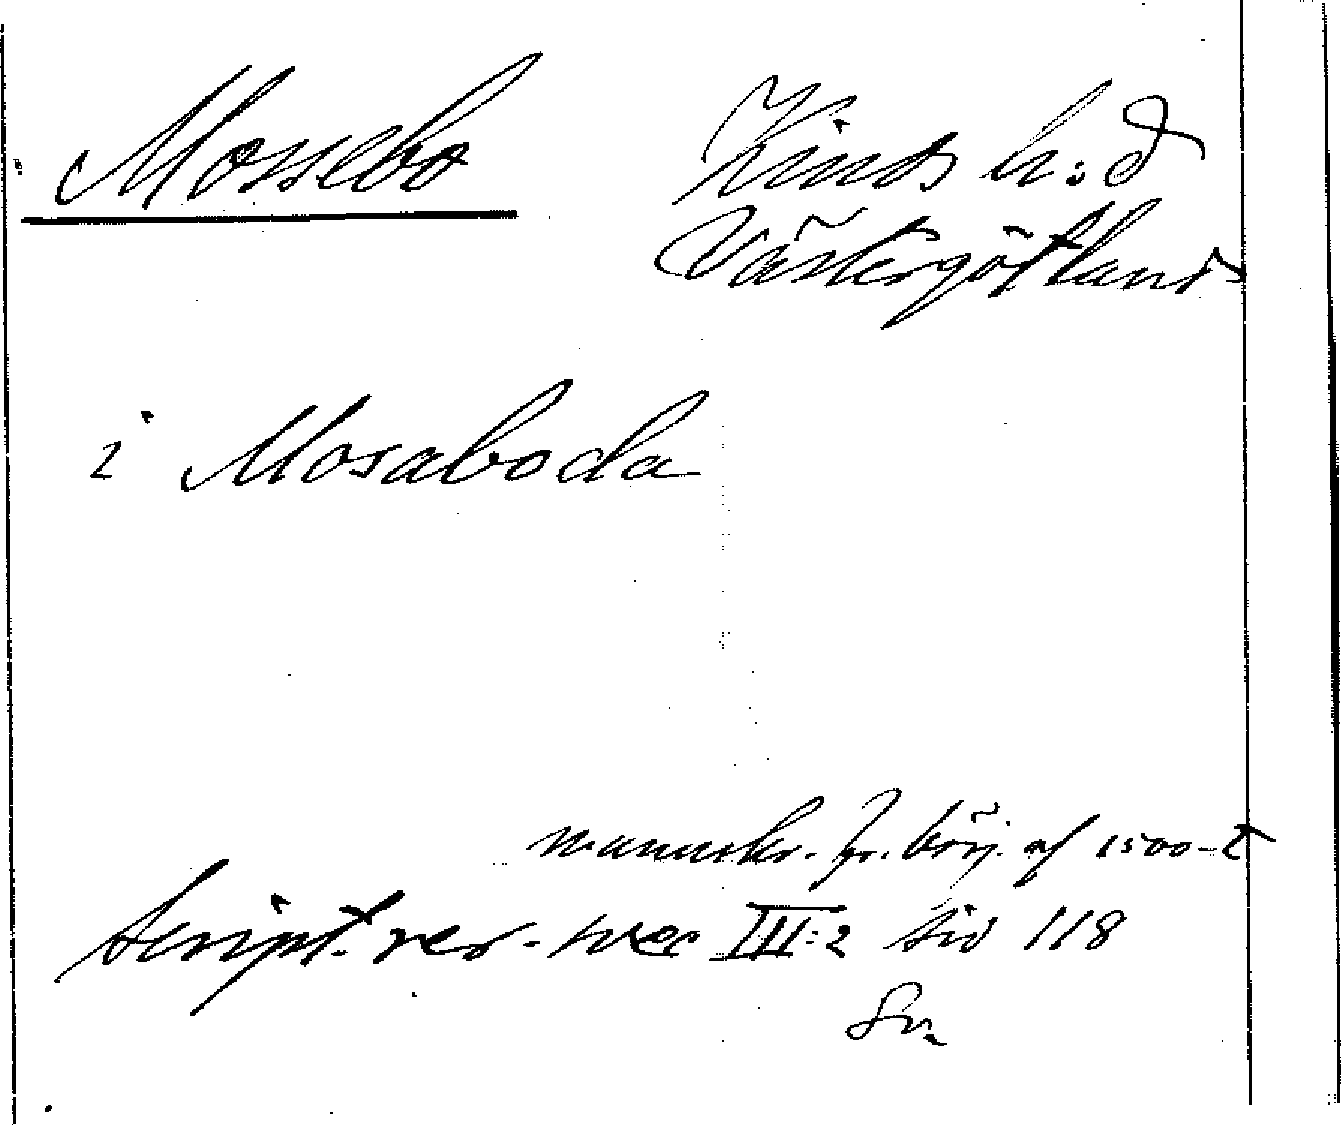 Mossebo
Kinds h:d
Västergötland
i Mosaboda
manuskr. fr. börj. af 1500-t
Script. rer. svec III:2 sid 118
Sv.